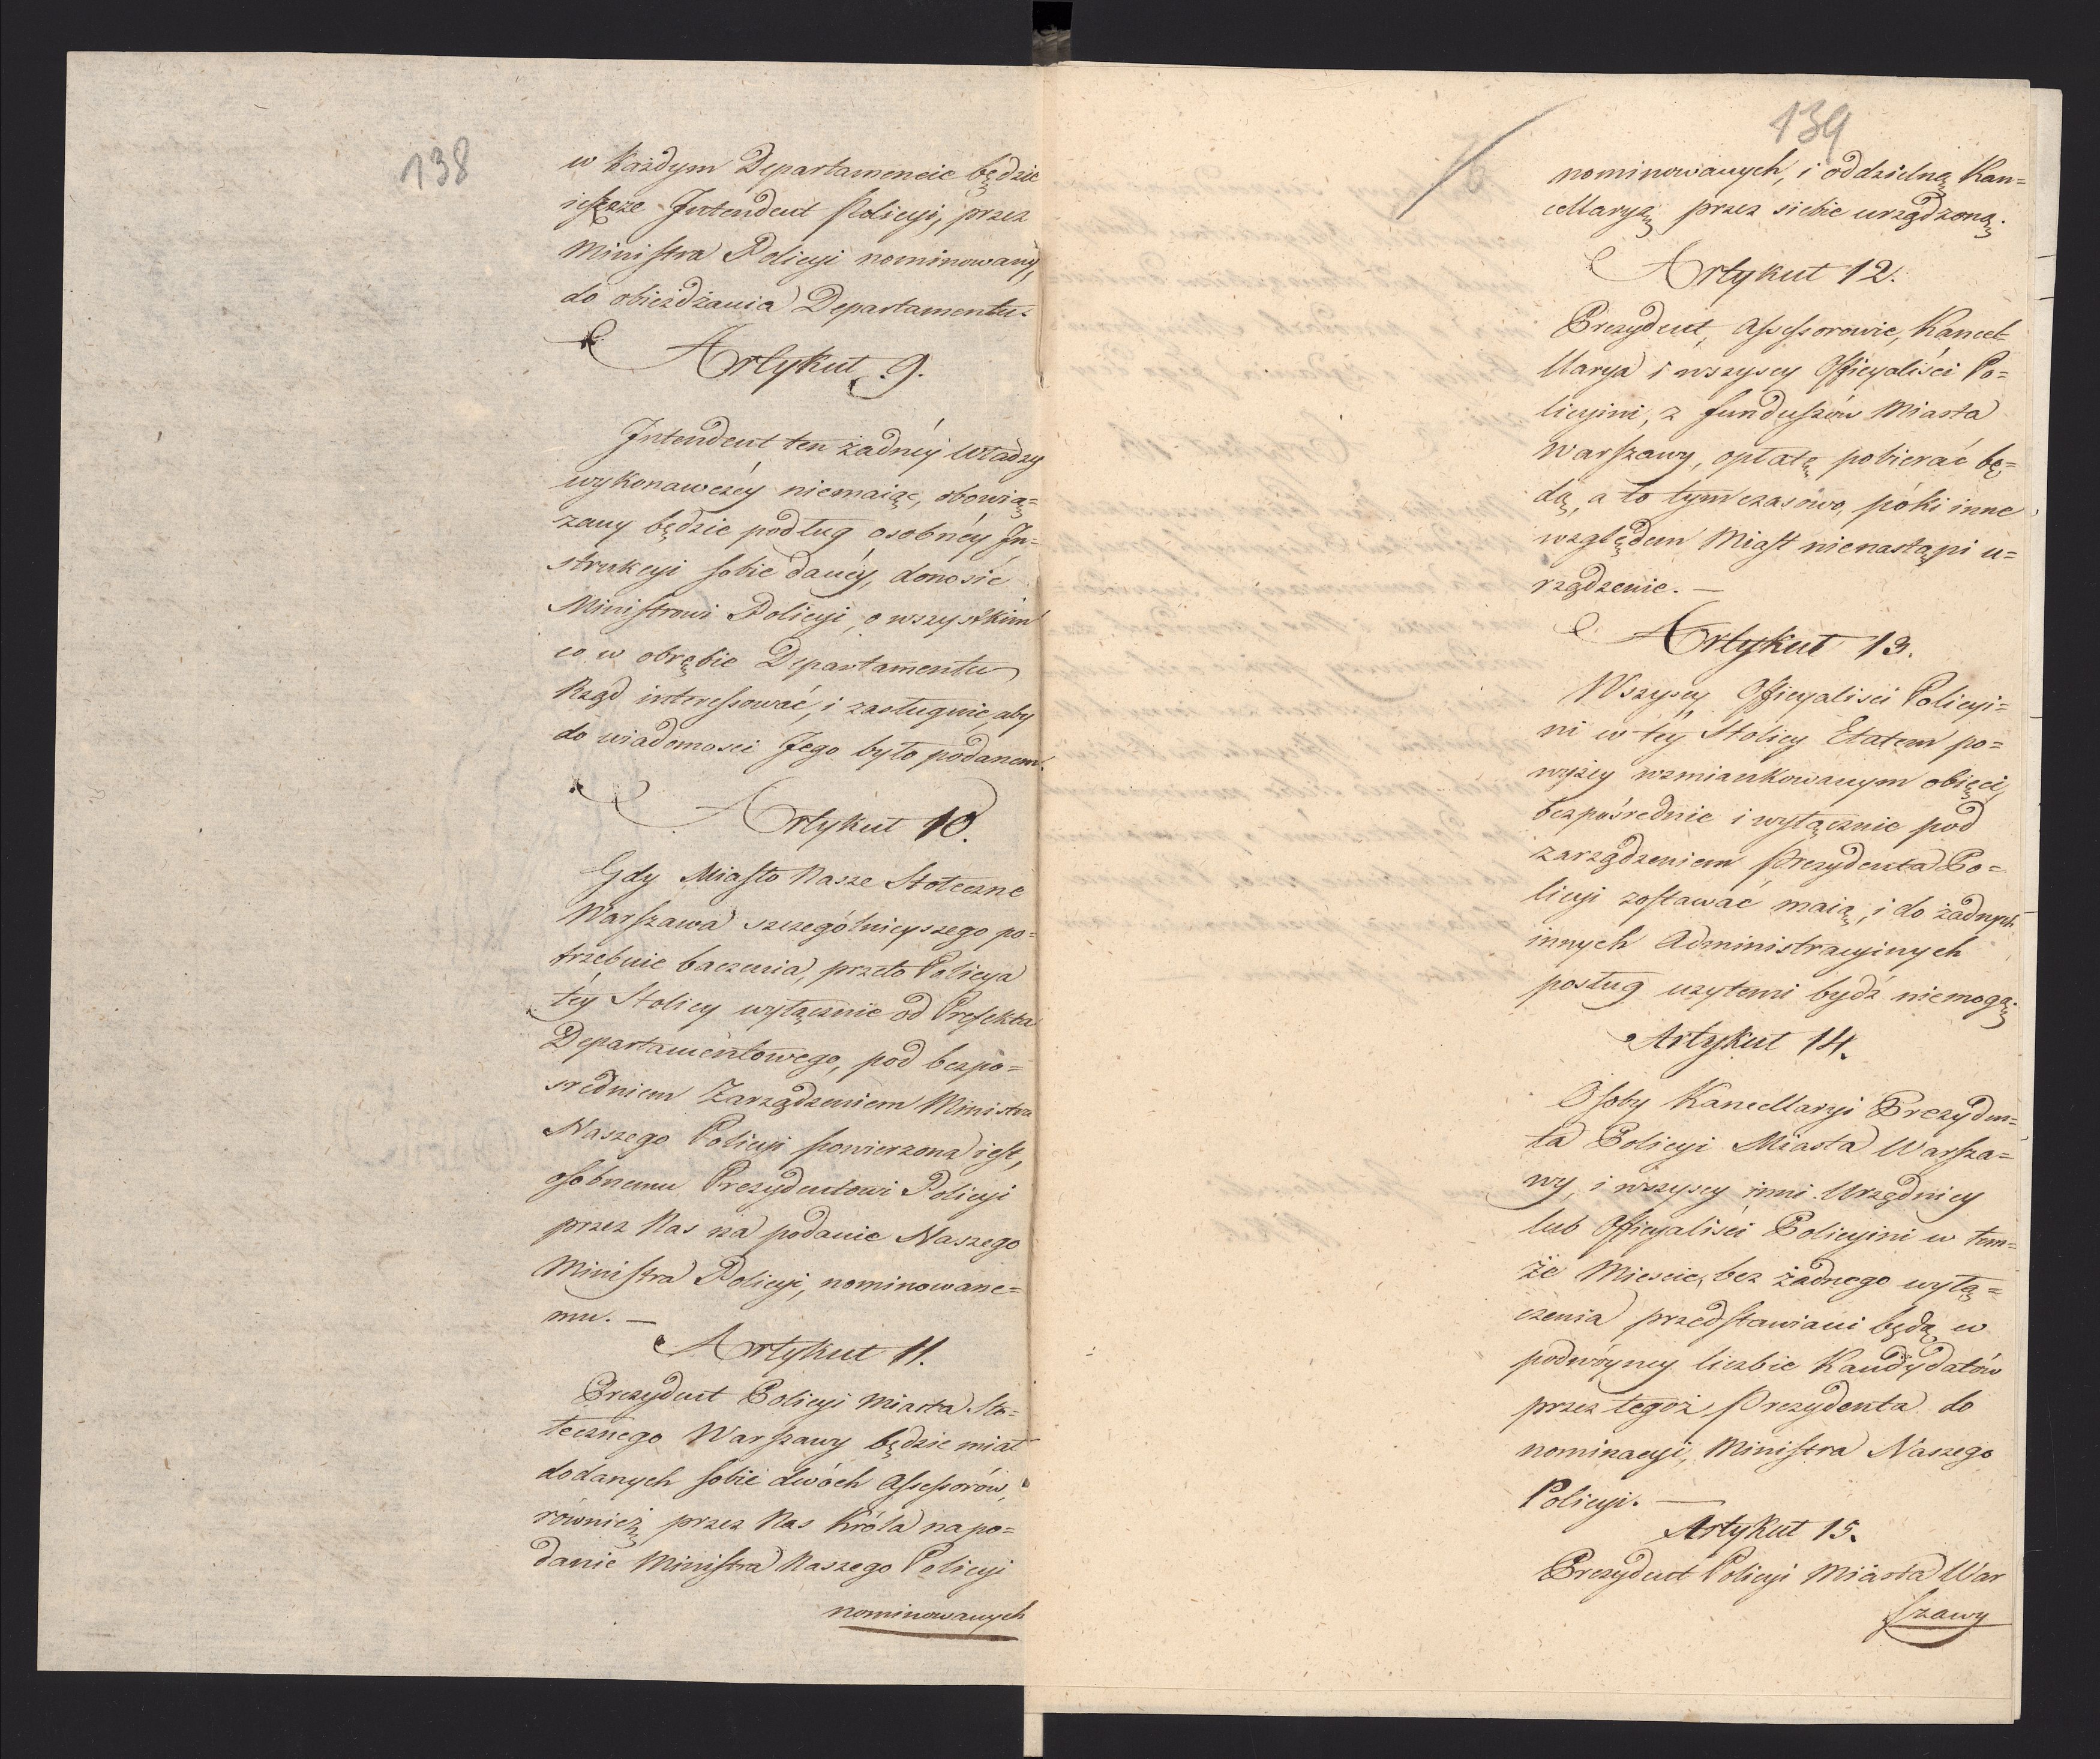 138
w każdym Departamencie będzie
ieszcze Intendent Policyi, przez
Ministra Policyi nominowany,
do obieżdżania Departamentu.
Artykuł 9.
Intendent ten żadnéy władzy
wykonawczéy niemaiąc, obowią=
zany będzie podług osobnéy In=
strukcyi sobie danéy, donosić
Ministrowi Policyi, o wszystkim
co w obrębie Departamentu
Rząd interessować, i zasługuie, aby
do wiadomosci Jego było podanem.
Artykuł 10.
Gdy Miasto Nasze Stołeczne
Warszawa szczególnieyszego po=
trzebuie baczenia, przeto Policya
téy Stolicy wyłącznie od Prefekta
Departamentowego, pod bezpo=
sredniem Zarządzeniem Ministra
Naszego Policyi powierzona iest,
osobnemu Prezydentowi Policyi
przez Nas na podanie Naszego
Ministra Policyi, nominowane=
mu. —
Artykuł 11.
Prezydent Policyi Miasta Sto=
łecznego Warszawy będzie miał
dodanych sobie dwóch Assessorów,
również przez Nas Króla na po=
danie Ministra Naszego Policyi
nominowanych
139
nominowanych, i oddzielną Kan=
cellaryą przez siebie urządzoną.
Artykuł 12.
Prezydent, Assessorowie, Kancel-
llarya i wszyscy Officyaliści Po=
licyini, z funduszów Miasta
Warszawy, opłatę pobierać bę=
dą, a to tymczasowo, póki inne
względem Miast nienastąpi u=
rządzenie. —
Artykuł 13.
Wszyscy Officyalisci Policyi=
ni w téy Stolicy Etatem po=
wyżey wzmiankowanym obięci,
bezpośrednie i wyłącznie pod
zarządzeniem Prezydenta Po=
licyi zostawać maią, i do żadnych
innych Administracyinych
posług uzytemi bydź niemogą.
Artykuł 14.
Osoby Kancellaryi Prezyden=
ta Policyi Miasta Warsza=
wy, i wszyscy inni Urzędnicy
lub Officyalisci Policyini w tem=
że Miescie, bez żadnego wyłą=
czenia przedstawiani będą w
podwóyney liczbie Kandydatów
przez tegoż Prezydenta do
nominacyi, Ministra Naszego
Policyi. —
Artykuł 15.
Prezydent Policyi Miasta War
szawy